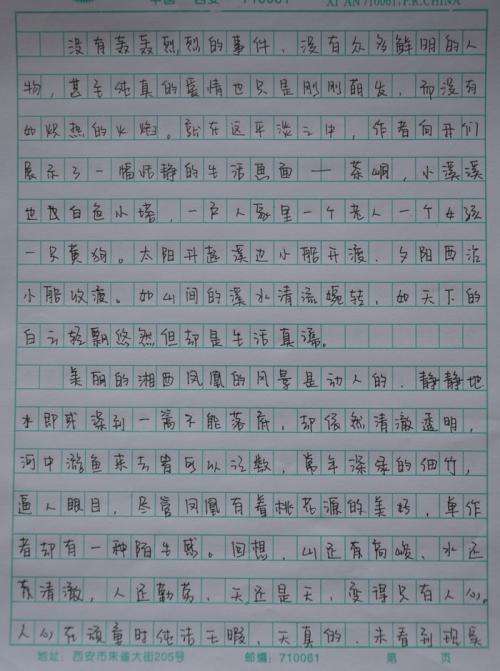 中国 西安 710061 XI'AN 710061, P.R.CHINA
没有轰轰烈烈的事件、没有众多鲜明的人
物,甚至纯真的爱情也只是刚刚萌发,而没有
如炽热的火炮。就在这平淡之中,作者向我们
展示了一幅恬静的生活画面——茶峒,小溪溪
边白色小塔,一户人家里一个老人一个女孩
一只黄狗。太阳升起溪边小船开渡、夕阳西沿
小船收渡。如山间的溪水清流蜿转,如天下的
白云轻飘悠然但却是生活真谛。
美丽的湘西凤凰的风景是动人的、静静地
水即或深到一篙不能落底,却依然清澈透明,
河中游鱼来去皆可以注数,常年深绿的细竹,
逼人眼目,尽管凤凰有着桃花源的美好,单作
者却有一种陌生感。回想,山还有高峻、水还
有清澈,人还勤劳、天还是天,变得只有人心。
人心在顽童时纯洁无暇、天真的、未看到现实
地址:西安市朱雀大街205号 邮编:710061 第 页